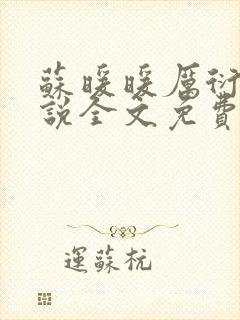 蘇暖暖厲衍
說全文免費
運蘇杭